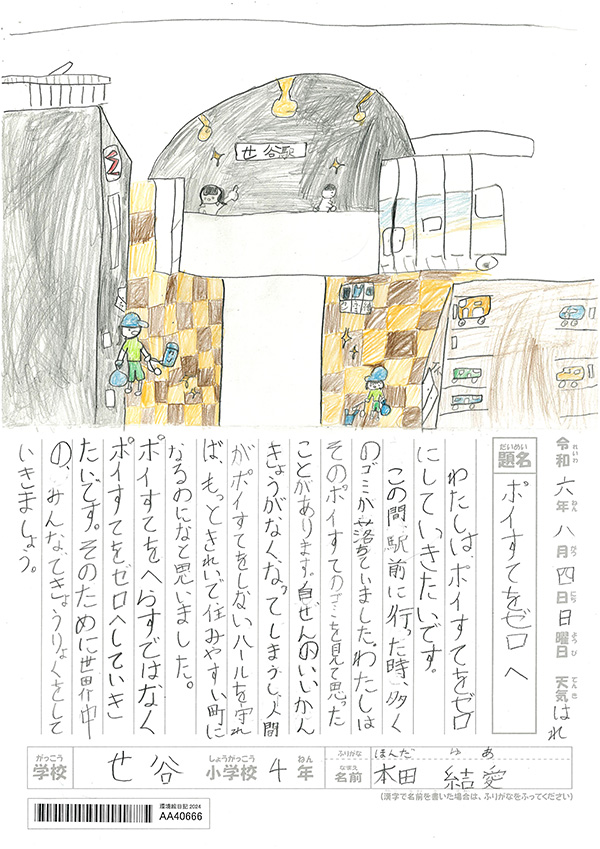 世谷駅
令和六年八月四日日曜日 天気 はれ
れいわ ねん がつ にち ようび てんき
だいめい
題名
ポイすてをゼロへ
わたしはポイすてをゼロ
にしていきたいです。
この間、駅前に行った時、多く
のゴミが落ちていました。わたしは
そのポイすてのゴミを見て思った
ことがあります。自ぜんのいいかん
きょうがなくなってしまうし、人間
がポイすてをしないルールを守れ
ば、もっときれいで住みやすい町に
なるのになと思いました。
ポイすてをへらすではなく
ポイすてをゼロへしていき
たいです。そのために世界中
の、みんなできょうりょくをして
いきましょう。
がっこう しょうがっこう ねん
学校 世谷 小学校 4年
ふりがな ほんだ ゆあ
なまえ
名前 本田 結愛
(漢字で名前を書いた場合は、ふりがなをふってください)
環境絵日記 2024
AA40666